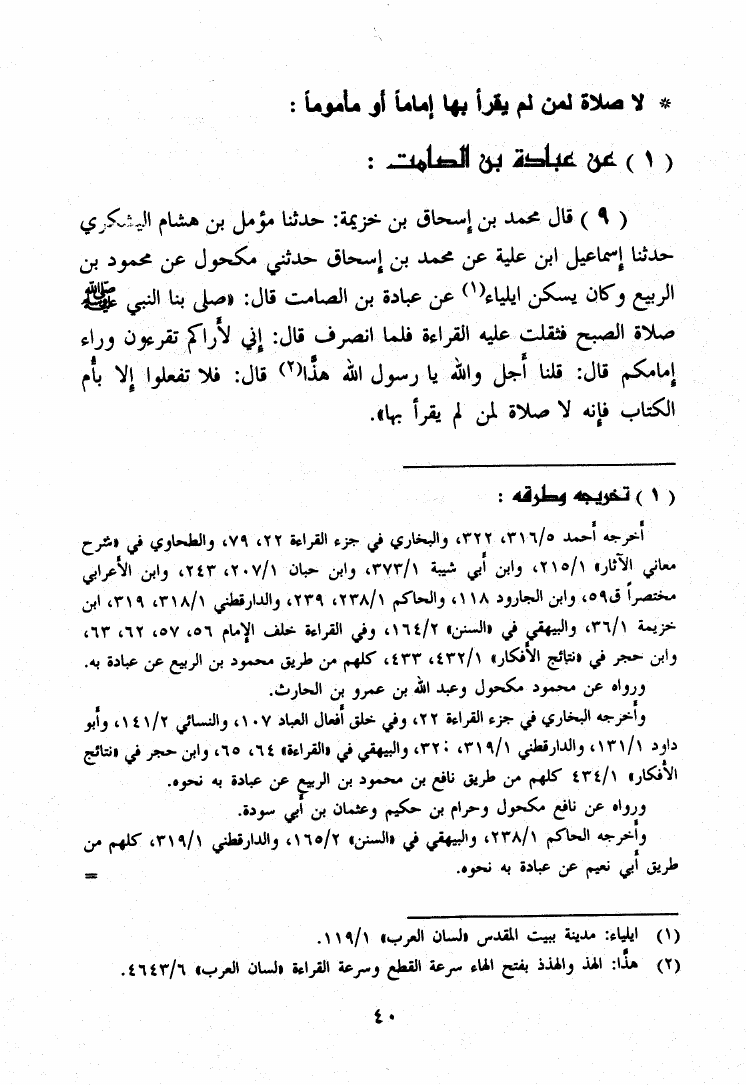 * لا صلاة لمن لم يقرأ بها إماماً أو مأموماً :
( ١ ) عن عبادة بن الصامت :
( ٩ ) قال محمد بن إسحاق بن خزيمة: حدثنا مؤمل بن هشام اليشكري
حدثنا إسماعيل ابن علية عن محمد بن إسحاق حدثني مكحول عن محمود بن
الربيع وكان يسكن ايلياء(١) عن عبادة بن الصامت قال: «صلى بنا النبي ﷺ
صلاة الصبح فثقلت عليه القراءة فلما انصرف قال: إني لأراكم تقرءون وراء
إمامكم قال: قلنا أجل والله يا رسول الله هذَّا(٢) قال: فلا تفعلوا إلا بأم
الكتاب فإنه لا صلاة لمن لم يقرأ بها».
( ١ ) تخريجه وطرقه :
أخرجه أحمد ٣١٦/٥، ٣٢٢، والبخاري في جزء القراءة ٢٢، ٧٩، والطحاوي في «شرح
معاني الآثار» ٢١٥/١، وابن أبي شيبة ٣٧٣/١، وابن حبان ٢٠٧/١، ٢٤٣، وابن الأعرابي
مختصراً ق٥٩، وابن الجارود ١١٨، والحاكم ٢٣٨/١، ٢٣٩، والدارقطني ٣١٨/١، ٣١٩، ابن
خزيمة ٣٦/١، والبيهقي في «السنن» ١٦٤/٢، وفي القراءة خلف الإمام ٥٦، ٥٧، ٦٢، ٦٣،
وابن حجر في «نتائج الأفكار» ٤٣٢/١، ٤٣٣، كلهم من طريق محمود بن الربيع عن عبادة به.
ورواه عن محمود مكحول وعبد الله بن عمرو بن الحارث.
وأخرجه البخاري في جزء القراءة ٢٢، وفي خلق أفعال العباد ١٠٧، والنسائي ١٤١/٢، وأبو
داود ١٣١/١، والدارقطني ٣١٩/١، ٣٢٠، والبيهقي في «القراءة» ٦٤، ٦٥، وابن حجر في «نتائج
الأفكار» ٤٣٤/١ كلهم من طريق نافع بن محمود بن الربيع عن عبادة به نحوه.
ورواه عن نافع مكحول وحرام بن حكيم وعثمان بن أبي سودة.
وأخرجه الحاكم ٢٣٨/١، والبيهقي في «السنن» ١٦٥/٢، والدارقطني ٣١٩/١، كلهم من
طريق أبي نعيم عن عبادة به نحوه. =
(١) ايلياء: مدينة ببيت المقدس «لسان العرب» ١١٩/١.
(٢) هذَّا: الهذ والهذذ بفتح الهاء سرعة القطع وسرعة القراءة «لسان العرب» ٤٦٤٣/٦.
٤٠